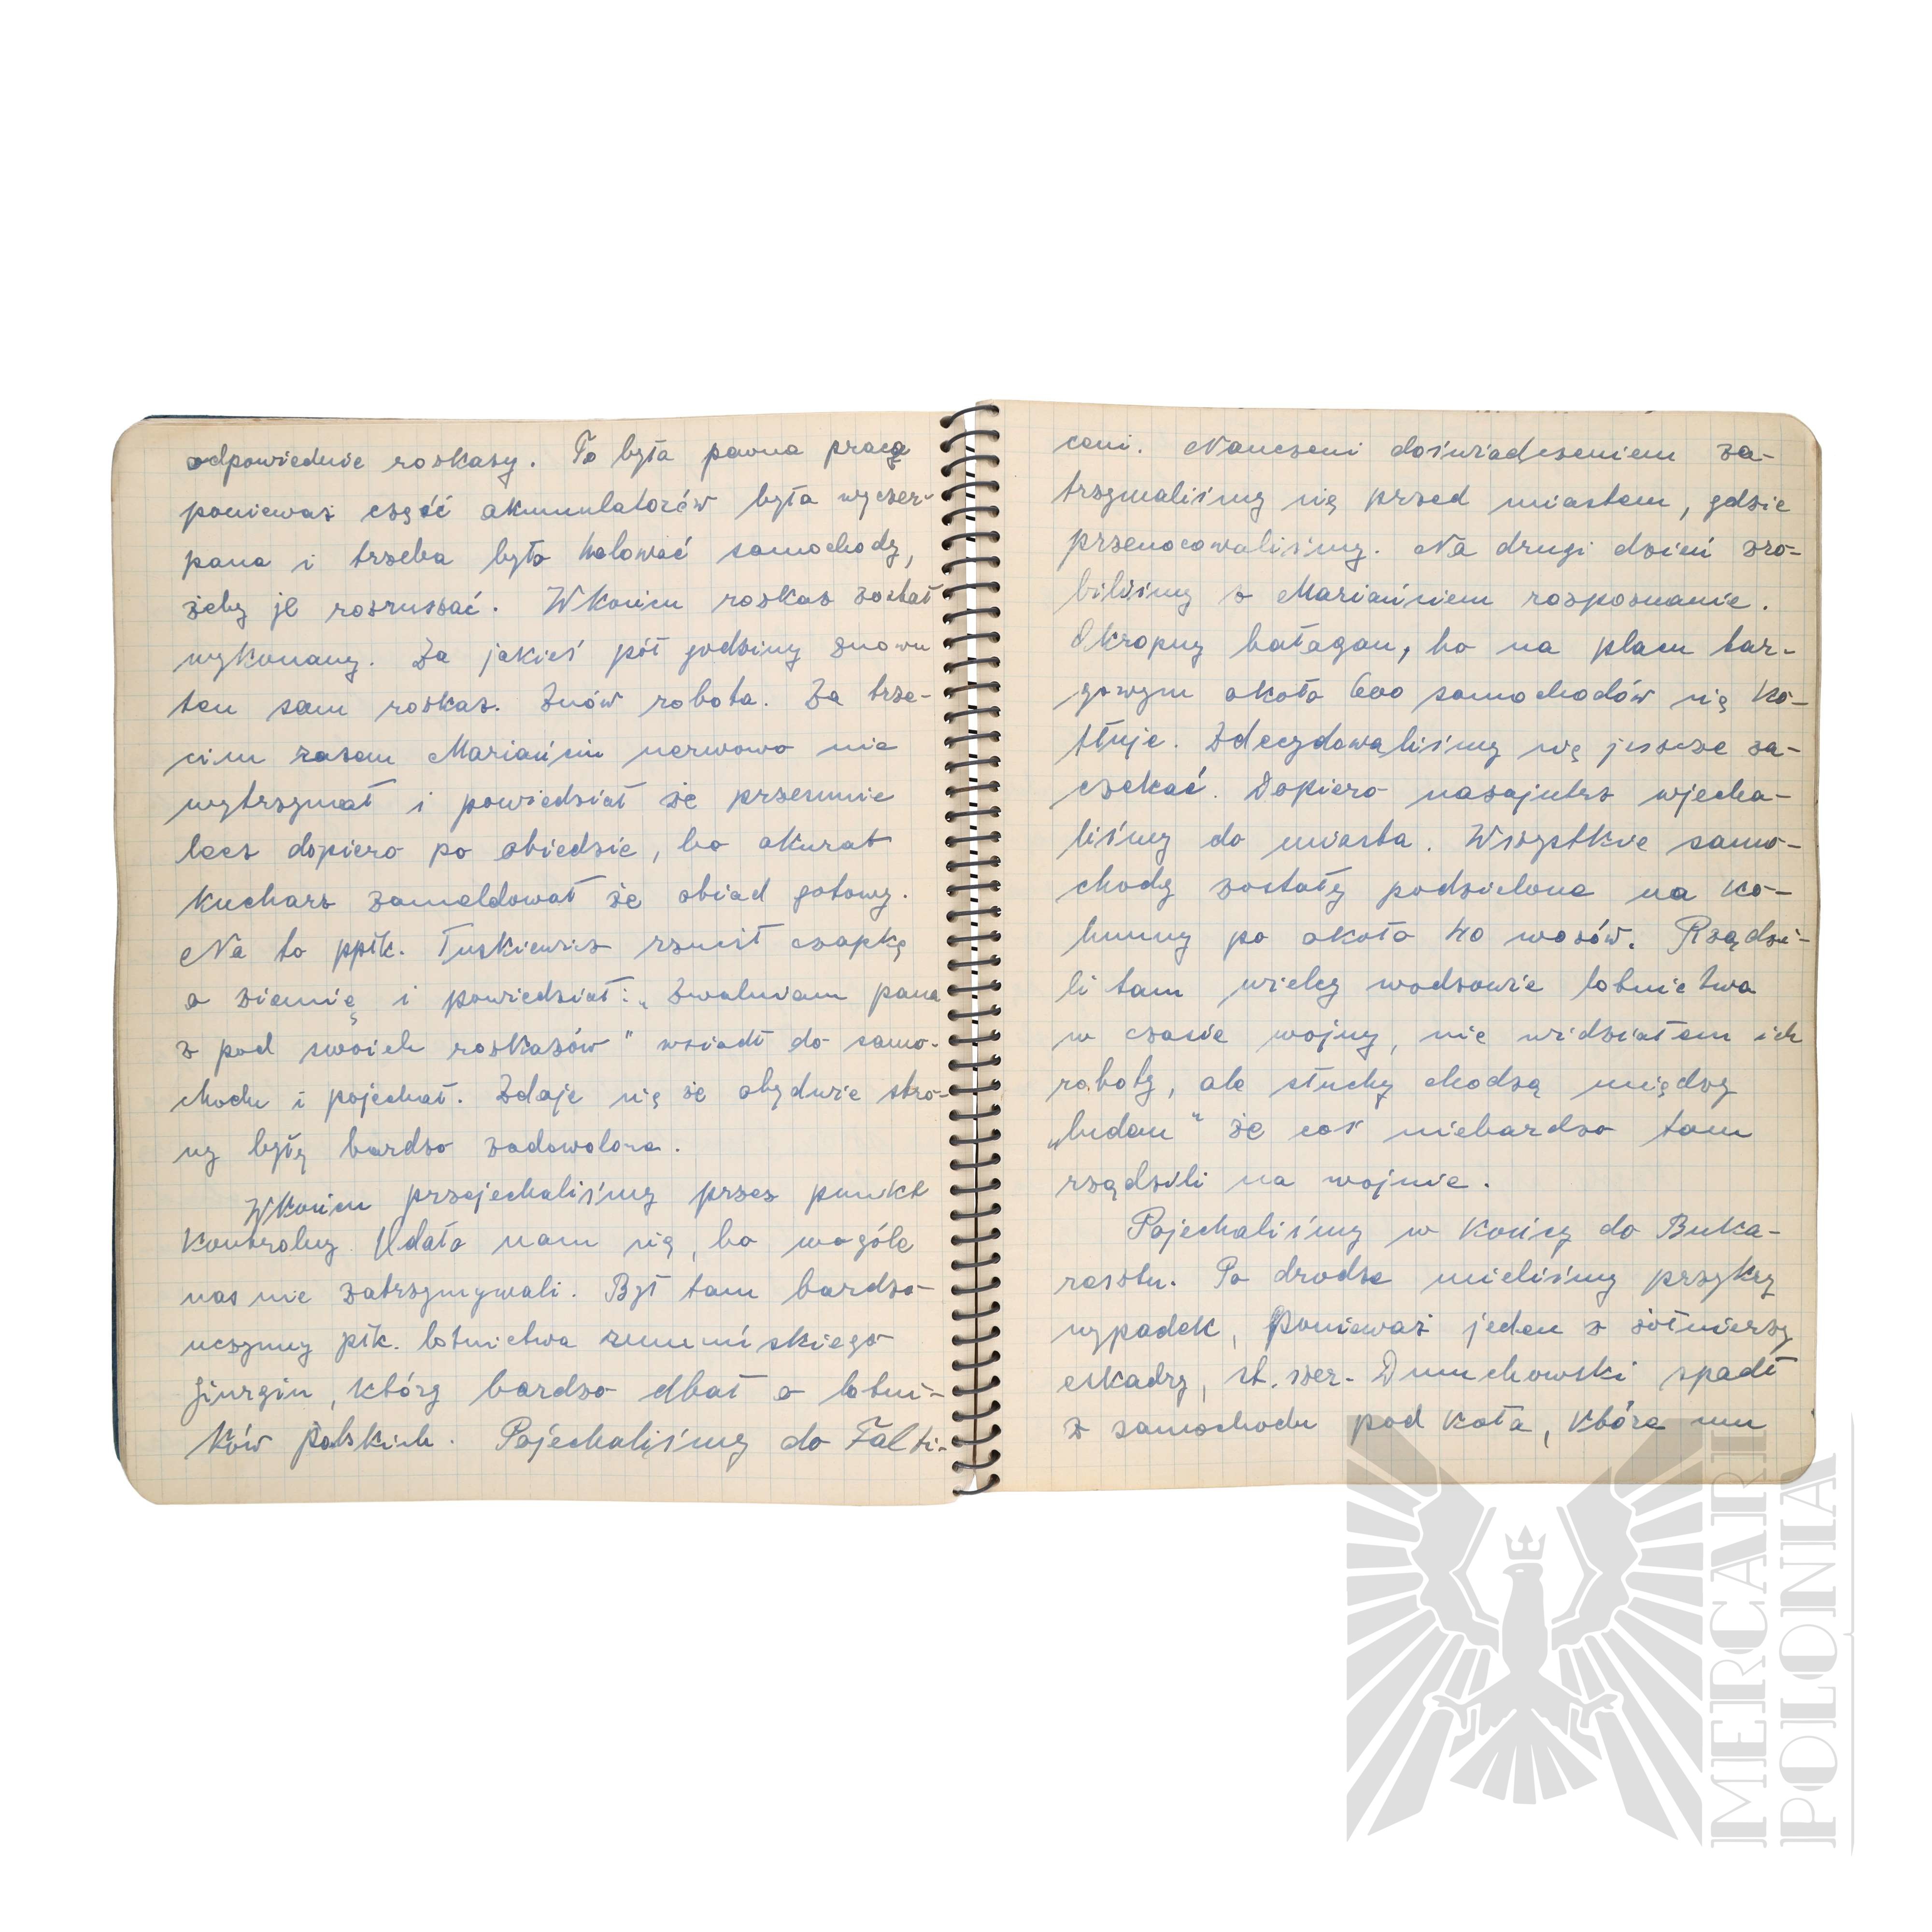 odpowiednie roskasy. To była pewna praca
poniewaz część akumulatorów była wyczer-
pana i trzeba było holować samochody,
żeby je rozruszać. Wkońcu roskaz został
wykonany. Za jakieś pół godziny znowu
ten sam roskaz. Znów robota. Za trze-
cim razem Mariańcin nerwowo nie
wytrzymał i powiedział że przesunie
lecz dopiero po obiedzie, bo akurat
kucharz zameldował że obiad gotowy.
Na to ppłk. Tuskiewicz rzucił czapkę
o ziemię i powiedział: „Zwalniam pana
z pod swoich roskazów" wsiadł do samo-
chodu i pojechał. Zdaje się że obydwie stro-
ny były bardzo zadowolone.
Wkońcu przejechaliśmy przez punkt
kontrolny. Udało nam się, bo wogóle
nas nie zatrzymywali. Był tam bardzo
uczynny płk. lotnictwa rumuńskiego
Jiurgin, który bardzo dbał o lotni-
ków Polskich. Pojechaliśmy do Falti-
ceni. Nauczeni doświadczeniem za-
trzymaliśmy się przed miastem, gdzie
przenocowaliśmy. Na drugi dzień zro-
biliśmy z Mariańciem rozpoznanie.
Okropny bałagan, bo na placu tar-
gowym około 600 samochodów się ko-
tłuje. Zdecydowaliśmy się jeszcze za-
czekać. Dopiero nazajutrz wjecha-
liśmy do miasta. Wszystkie samo-
chody zostały podzielone na ko-
lumny po około 40 wozów. Rządzi-
li tam wielcy wodzowie lotnictwa
w czasie wojny, nie widziałem ich
roboty, ale słuchy chodzą między
„ludem" że coś niebardzo tam
rządzili na wojnie.
Pojechaliśmy w końcu do Buka-
resztu. Po drodze mieliśmy przykry
wypadek, ponieważ jeden z żołnierzy
eskadry, st. szer. Dmuchowski spadł
z samochodu pod koła, które mu
MERCARI
POLONIA